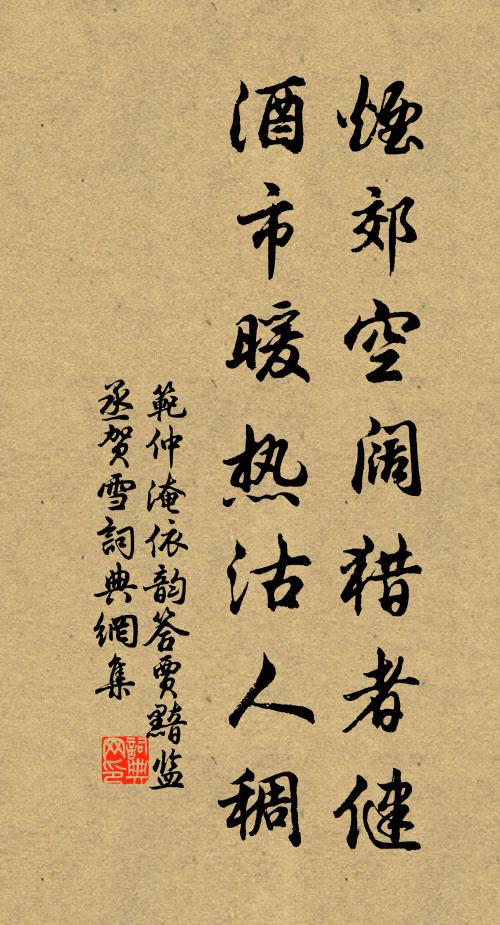 烟郊空阔猎者健
酒市暖热沽人稠
範仲淹依韵答賈黯监
丞贺雪詞典網集
詞典网印